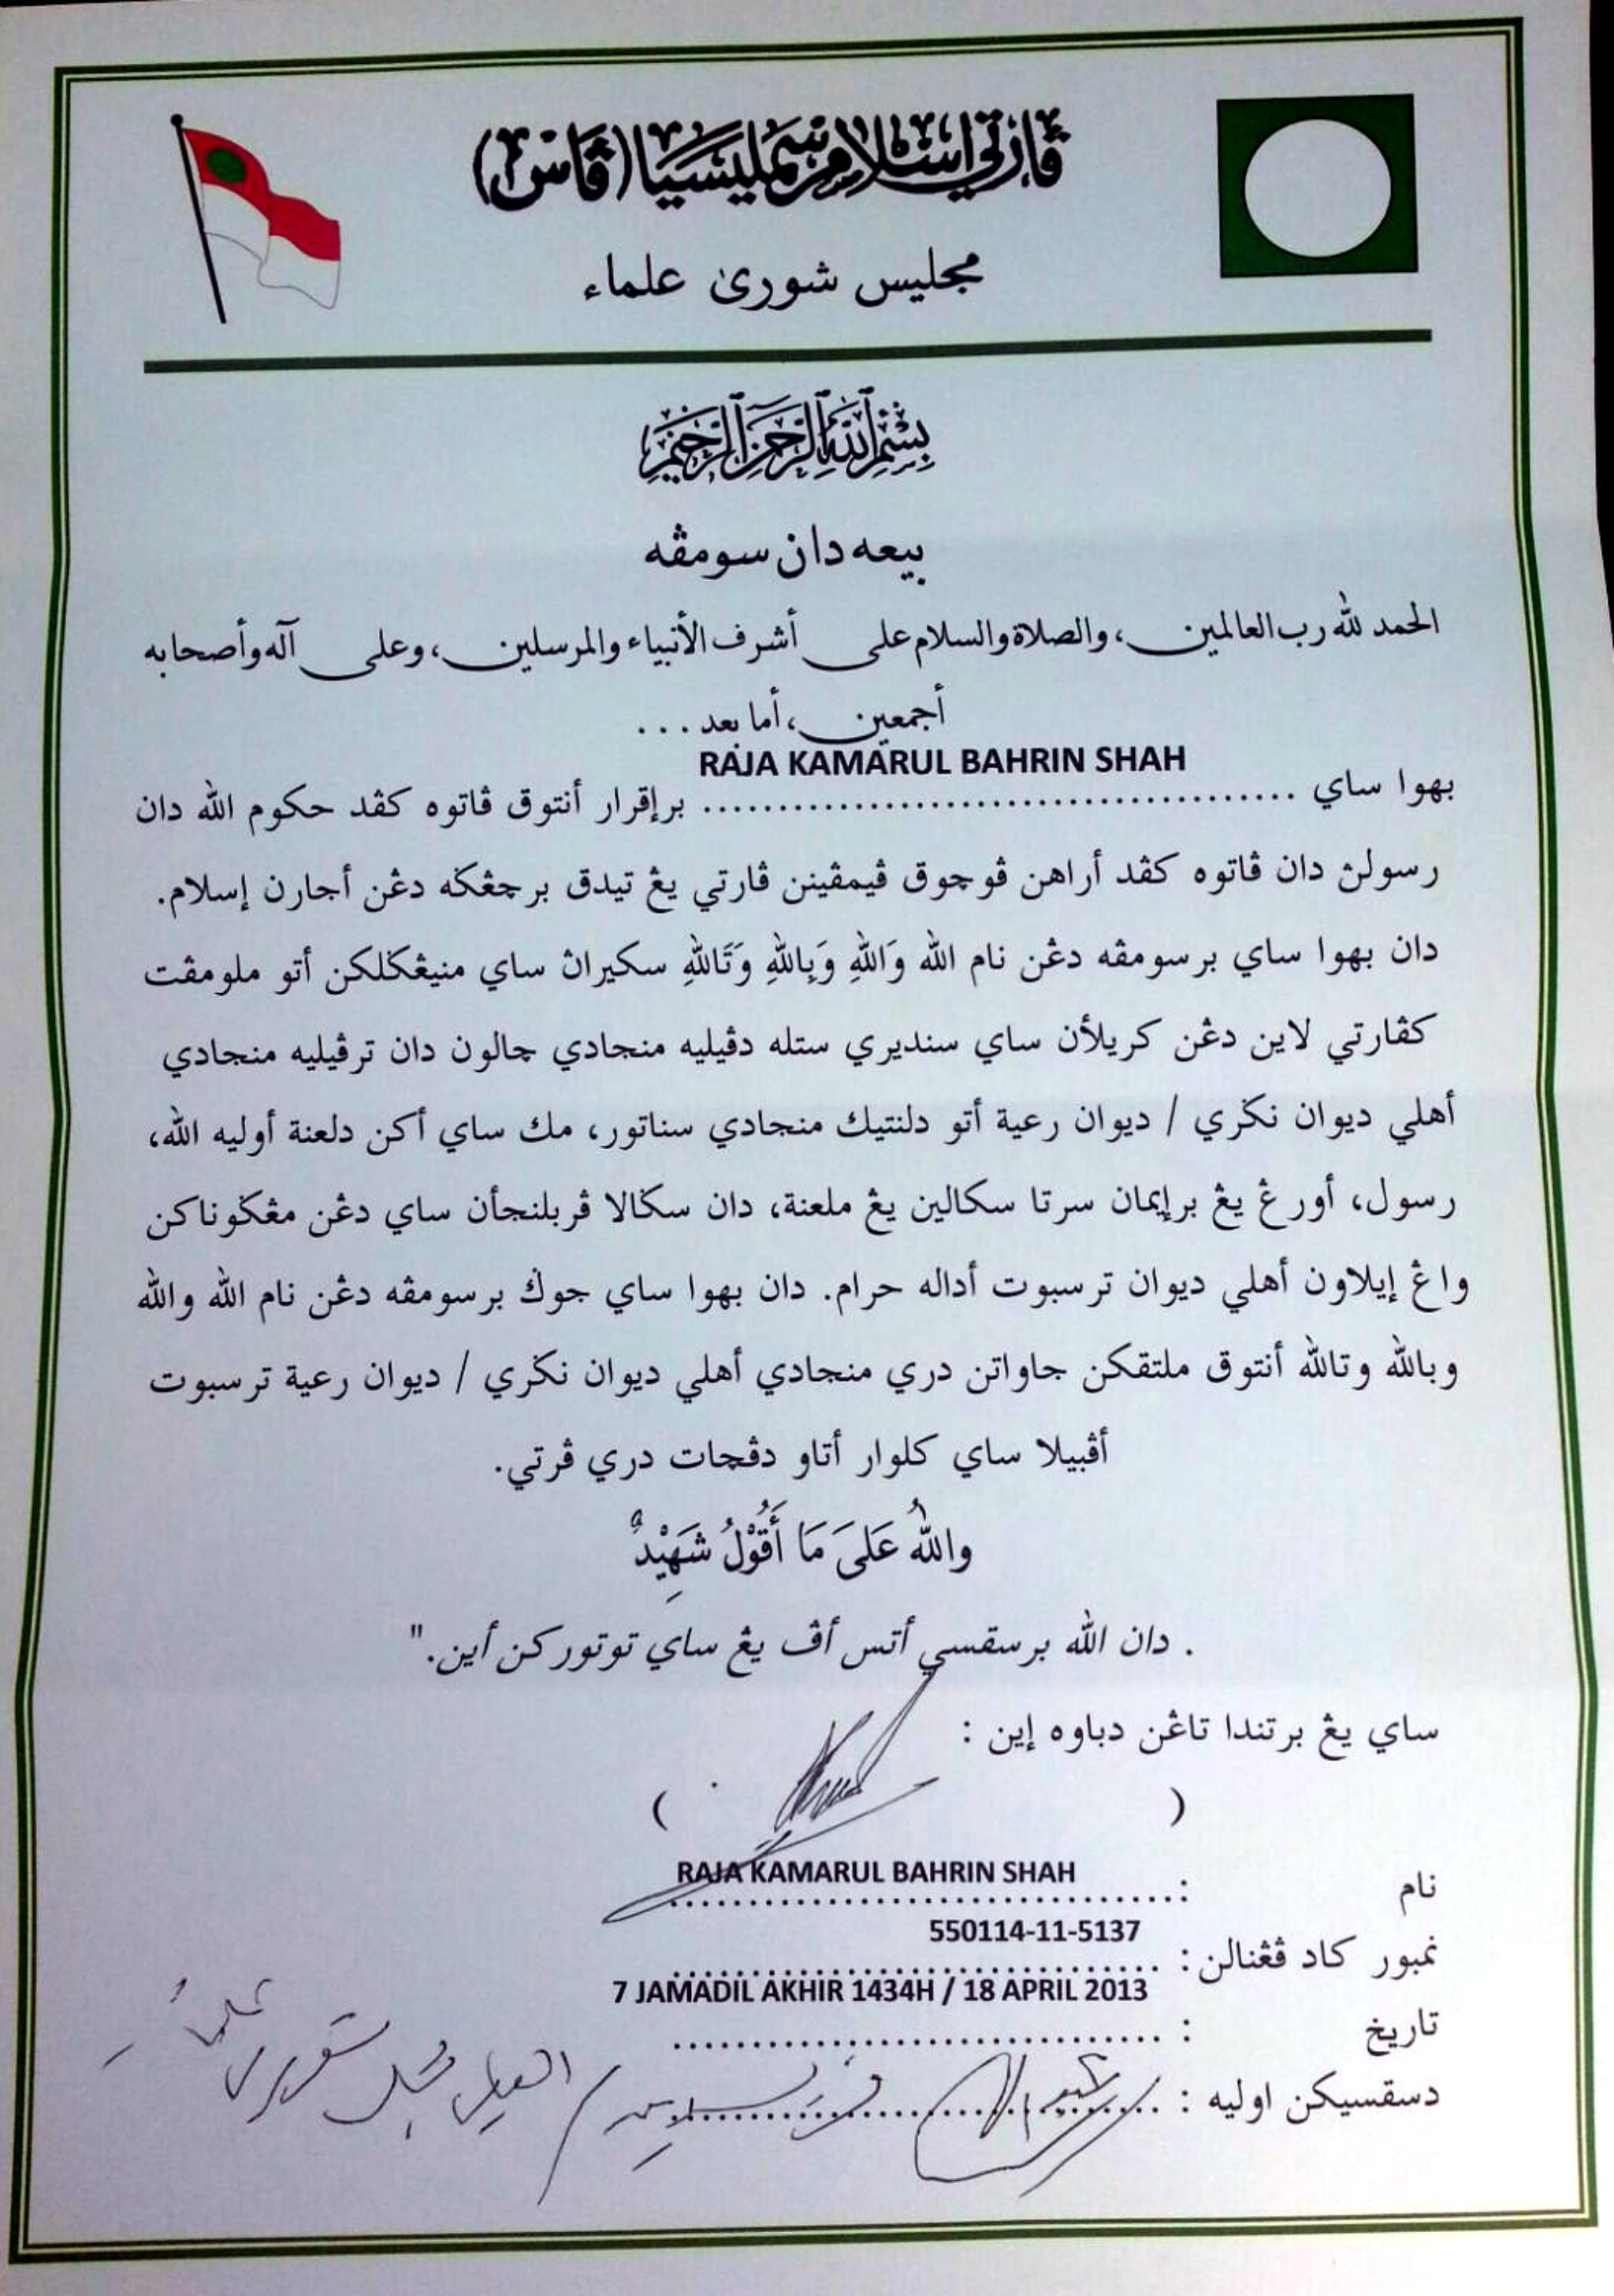 ڤارتي إسلام سمليسيا (ڤاس)
مجليس شورىٰ علماء
بِسْمِ ٱللَّهِ ٱلرَّحْمَٰنِ ٱلرَّحِيمِ
بيعه دان سومڤه
الحمد لله رب العالمين، والصلاة والسلام على أشرف الأنبياء والمرسلين، وعلى آله وأصحابه
أجمعين، أما بعد ...
RAJA KAMARUL BAHRIN SHAH
بهوا ساي ........................................ برإقرار أنتوق ڤاتوه كڤد حكوم الله دان
رسولڽ دان ڤاتوه كڤد أراهن ڤوچوق ڤيمڤينن ڤارتي يڠ تيدق برچڠݢه دڠن أجارن إسلام.
دان بهوا ساي برسومڤه دڠن نام الله وَاللهِ وَبِاللهِ وَتَاللهِ سكيراڽ ساي منيڠݢلكن أتو ملومڤت
كڤارتي لاين دڠن كريلأن ساي سنديري ستله دڤيليه منجادي چالون دان ترڤيليه منجادي
أهلي ديوان نݢري / ديوان رعية أتو دلنتيك منجادي سناتور، مك ساي أكن دلعنة أوليه الله،
رسول، أورڠ يڠ برإيمان سرتا سكالين يڠ ملعنة، دان سݢالا ڤربلنجأن ساي دڠن مڠݢوناكن
واڠ إيلاون أهلي ديوان ترسبوت أداله حرام. دان بهوا ساي جوݢ برسومڤه دڠن نام الله والله
وبالله وتالله أنتوق ملتقكن جاواتن دري منجادي أهلي ديوان نݢري / ديوان رعية ترسبوت
أڤبيلا ساي كلوار أتاو دڤچات دري ڤرتي.
واللهُ عَلىَ مَا أَقُوْلُ شَهِيْدٌ
. دان الله برسقسي أتس أڤ يڠ ساي توتوركن أين."
ساي يڠ برتندا تاڠن دباوه إين :
( )
نام : RAJA KAMARUL BAHRIN SHAH
نمبور كاد ڤڠنالن : 550114-11-5137
تاريخ : 7 JAMADIL AKHIR 1434H / 18 APRIL 2013
دسقسيكن اوليه :